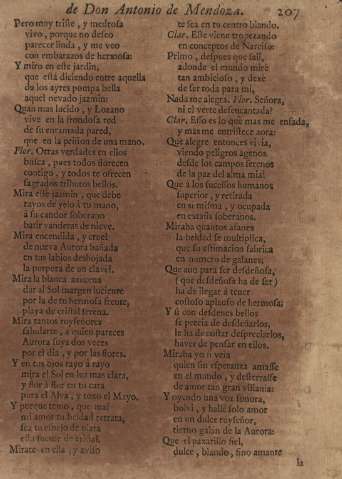 de Don Antonio de Mendoza. 207
Pero muy triste, y medrosa
vivo, porque no deseo
parecer linda, y me veo
con embarazos de hermosa:
Y miro en este jardin,
que està diciendo entre aquella
de los ayres pompa bella
aquel nevado jazmin:
Quan mas lucido, y Lozano
vive en la frondosa red
de su enramada pared,
que en la prision de una mano.
Flor. Otras verdades en ellos
busca, pues todos florecen
contigo, y todos te ofrecen
sagrados tributos bellos.
Mira esse jazmin, que debe
rayos de yelo à tu mano,
à su candor soberano
batir vanderas de nieve.
Mira encendida, y cruel
de nueva Aurora bañada
en tus labios deshojada
la purpura de un clavel.
Mira la blanca azucena
dar al Sol mejores luceros
por la de tu hermosa frente,
playa de cristal serena.
Mira tantos ruyseñores
saludarte, à quien pareces
Aurora suya dos veces
por el dia, y por las flores.
Y en tus ojos rayo à rayo
mira el Sol en luz mas clara,
y flor à flor en tu cara
pura el Alva, y todo el Mayo.
Y porque temo, que mal
mi amor tu beldad retrata,
sea tu espejo de plata
esta fuente de cristal.
Mirate en ella, y aviso
te sea en tu centro blando.
Clar. Este viene tropezando
en conceptos de Narciso:
Primo, despues que salì,
adonde el mundo mirè
tan ambicioso, y dexè
de ser toda para mi,
Nada me alegra. Flor. Señora,
ni el verte desencantada?
Clar. Esso es lo que mas me enfada,
y mas me entristece aora:
Què alegre entonces vivia,
viendo peligros agenos
desde los campos serenos
de la paz del alma mia!
Què à los sucessos humanos
superior, y retirada
en sì misma, y ocupada
en estarse soberana.
Miraba quantos afanes
la beldad se multiplica,
que su estimacion fabrica
en numero de galanes;
Que aun para ser desdeñosa,
( que desdeñosa ha de ser )
ha de llegar à tener
costoso aplauso de hermosa;
Y si con desdenes bellos
se precia de desdeñarlos,
le ha de costar despreciarlos,
haver de pensar en ellos.
Miraba yo ù veia
quien sin esperanza amasse
en el mundo, y desterrasse
de amor tan gran villania:
Y oyendo una voz sonora,
bolvì, y hallè solo amor
en un dulce ruyseñor,
tierno galàn de la Aurora:
Que el paxarillo fiel,
dulce, blando, fino amante
la